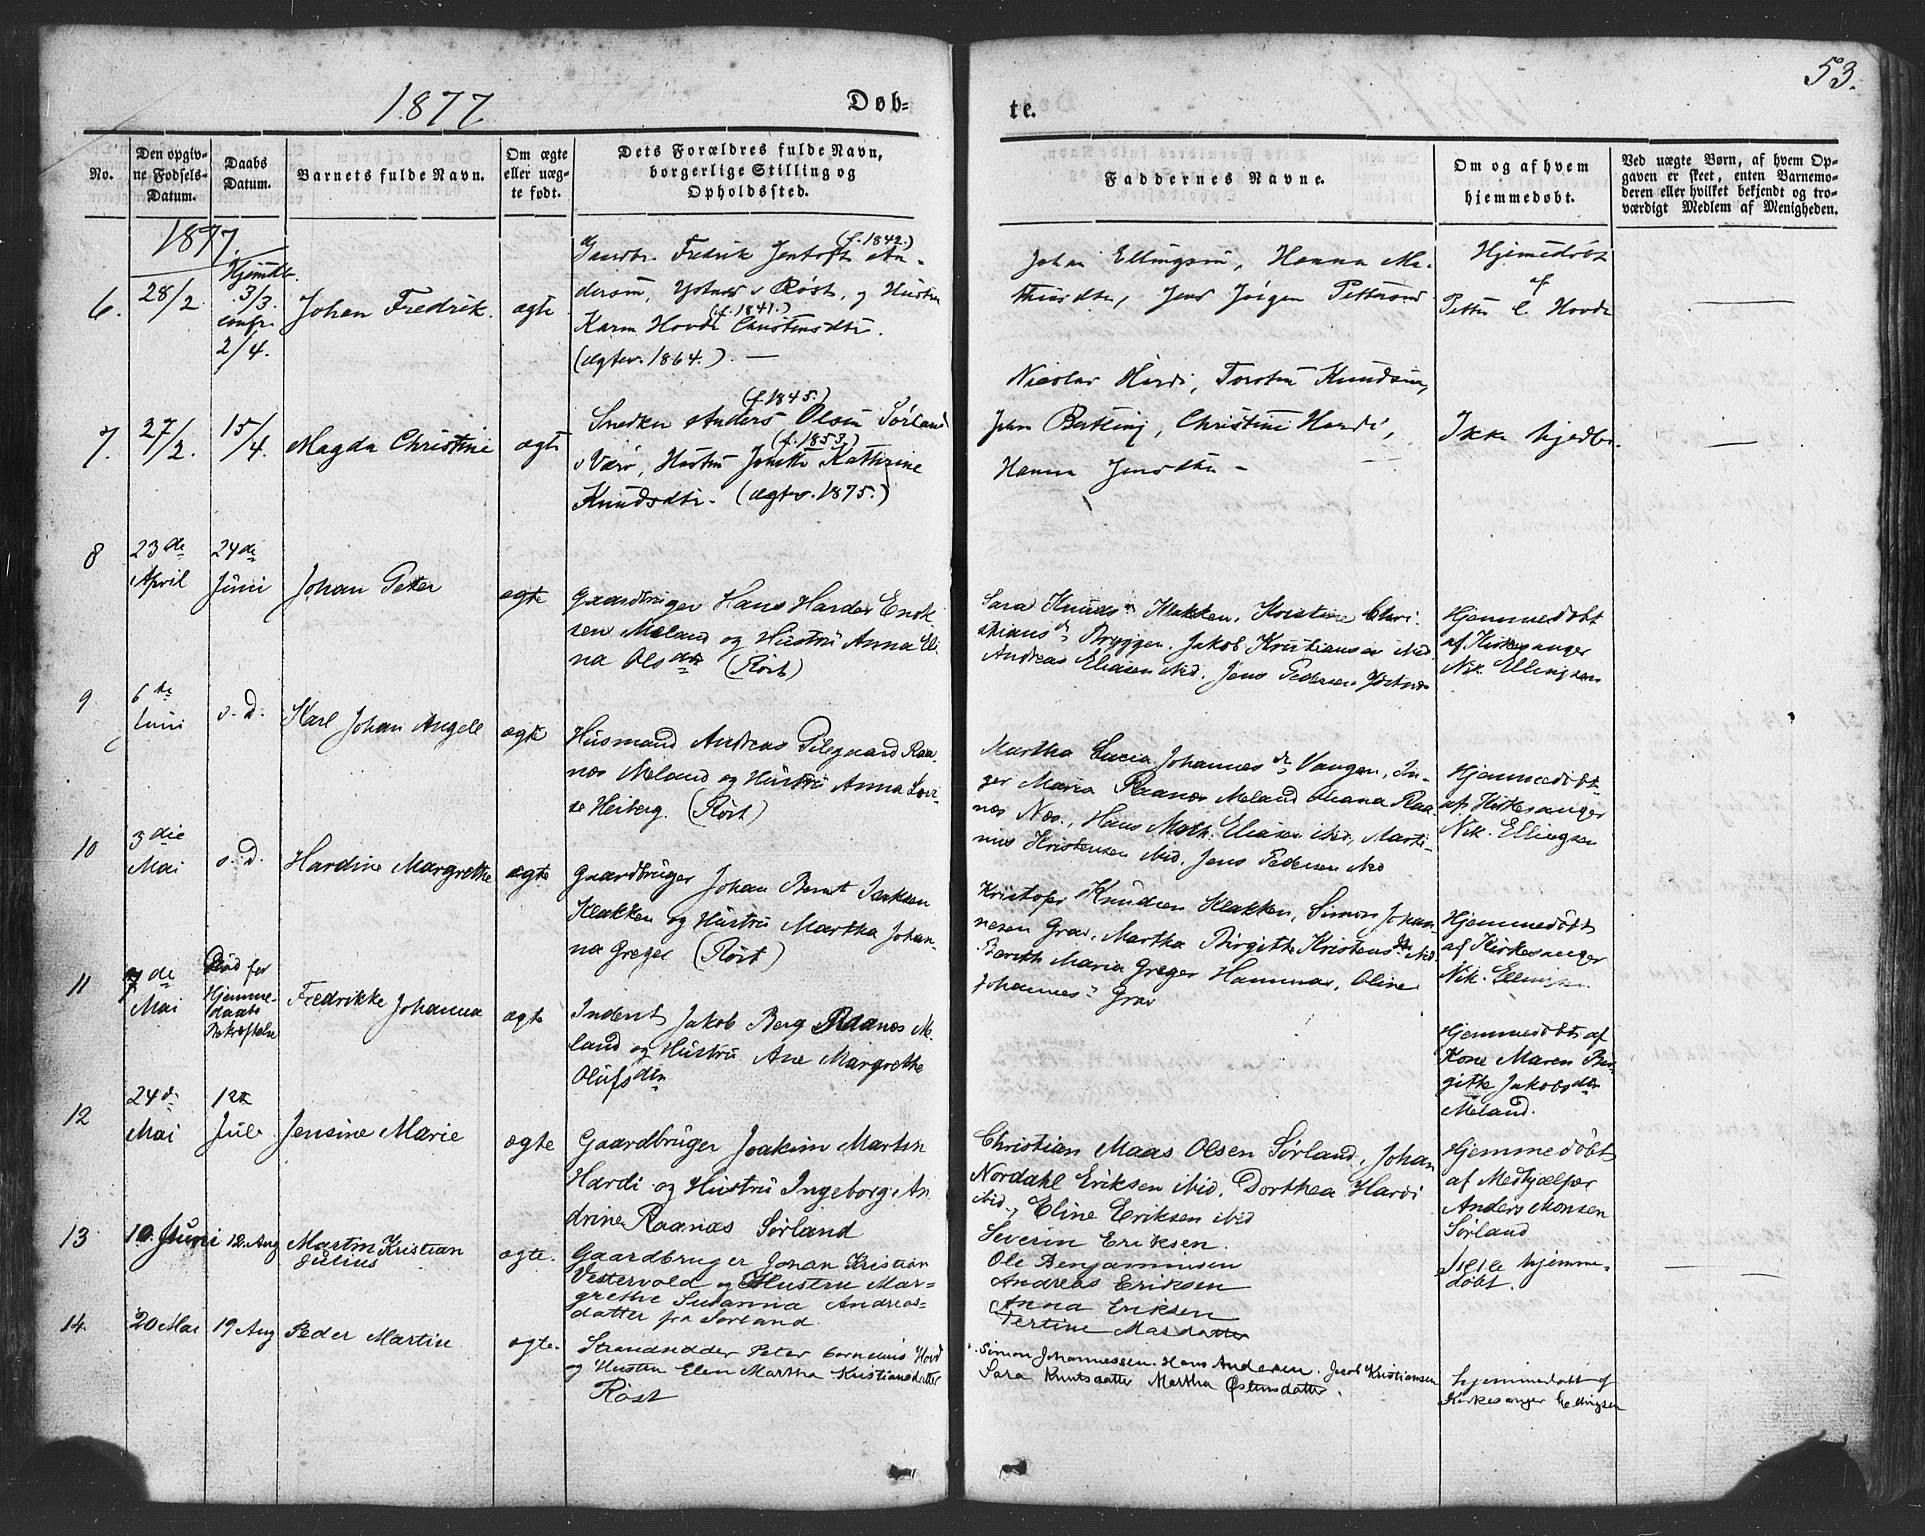 53.
1877.
Døb=
te.
No.
Den opgiv-
ne Fødsels-
Datum.
Daabs
Datum.
Barnets fulde Navn.
Om ægte
eller uæg-
te født.
Dets Forældres fulde Navn,
borgerlige Stilling og
Opholdsfted.
Faddernes Navne.
Om og af hvem
hjemmedøbt.
Ved uægte Børn, af hvem Op-
gaven er skeet, enten Barnemo-
deren eller hvilket bekjendt og tro-
værdigt Medlem af Menigheden.
1877.
6.
28/2
3/3.
2/4.
Johan Fredrik.
ægte
(f. 1842.)
Gaardbr. Fredrik Jentoft An-
dersen, Røst, og Hustru
(f. 1841.)
Karen Hovde Christensdtr.
(ægtev. 1864.) —
Johan Ellingsen, Hanna Ma-
Jens Jørgen Pettersen
Hjemedøbt
af
Petter C Hovde
7.
27/2.
15/4.
Magda Christine
ægte
(f. 1845.)
Snedker Anders Olsen Sørland
(f. 1853.)
Værø, Hustru Kathrine
Knudsdtr. (ægtv. 1875.)
Nicolai Hardi, Torsten Knudsen,
John Berthing, Christine Hardi,
Hanna Jensdtr –
Ikke hjedbt.
8
23de
April
24de
Juni
Johan Peter
egte
Gaardbruger Hans Harder Erik
sen Meland og Hustru Anna Eli
na Olsdtr (Røst)
Sara Knudsdr Klakken, Kristine Chri-
stiansdr Bryggen. Jakob Kristiansen ibid.
Andreas Eliasen ibid. Jens Pedersen
Hjemmedøbt
af Kirkesanger
Nik. Ellingsen
9
6te
Juni
s. D.
Karl Johan Angell
ægte
Husmand Andreas Pilegaard Raa
næs Meland og Hustru Anna Lovi-
se Heiberg. (Røst)
Martha Lucia Johannesdr Vangen, In-
ger Maria Raanæs Meland Raa-
næs Næs., Hans Math. Eliasen ibid, Marti-
nus Kristensen ibid. Jens Pedersen ibid
Hjemmedøbt
af Kirkesanger
Nik. Ellingsen
10
3die
Mai
s. D.
Hardine Margrethe
ægte
Gaardbruger Johan Bernt Isaksen
Klakken og Hustru Martha Johan-
na Greger (Røst)
Kristofer Knudsen Klakken, Simon Johan-
nesen Grav, Martha Birgithe Kristensdtr ibid
Bereth Maria Greger Hammar, Oline
Johannesdr Grav
Hjemmedøbt
af Kirkesanger
Nik. Ellingsen
11
7de
Mai
Død før
Hjemme-
daabs
Bekræftelse
Fredrikke Johanna
ægte
Inderst Jakob Berg Raanæs Me
land og Hustru Ane Margrethe
Olufsdtr
Hjemmedøbt af
Kone Maren Bir
gitte Jakobsdtr
Meland.
12
24de
Mai
1ste
Juli
Jensine Marie
ægte
Gaardbruger Joakim Martin
Hardi og Hustru Ingeborg An
drine Raanæs Sørland
Christian Maas Olsen Sørland, Johan
Nordahl Eriksen ibid, Dorthea Hardi
ibid., Eline Eriksen ibid
Hjemmedøbt
af Medhjælper
Anders Monsen
Sørland
13
10. Juni
12. Aug
Martin Kristian
Julius
ægte.
Gaardbruger Johan Kristian
Vestervold og Hustru Mar-
grethe Susanna Andreas-
datter fra Sørland.
Severin Eriksen.
Ole Benjaminsen
Andreas Eriksen
Anna Eriksen
Pertine Masdatter
Ikke hjemme-
døbt.
14.
20 Mai
19 Aug
Peder Martin
ægte.
Strandsidder Peter Cornelius Hovd
og Hustru Elen Martha Kristiansdatter
Røst
Simon Johannessen. Hans Andersen. Jacob Kristiansen
Sara Knutsdatter Martha Østensdatter.
hjemmedøbt af
Kirkesanger Ellingsen